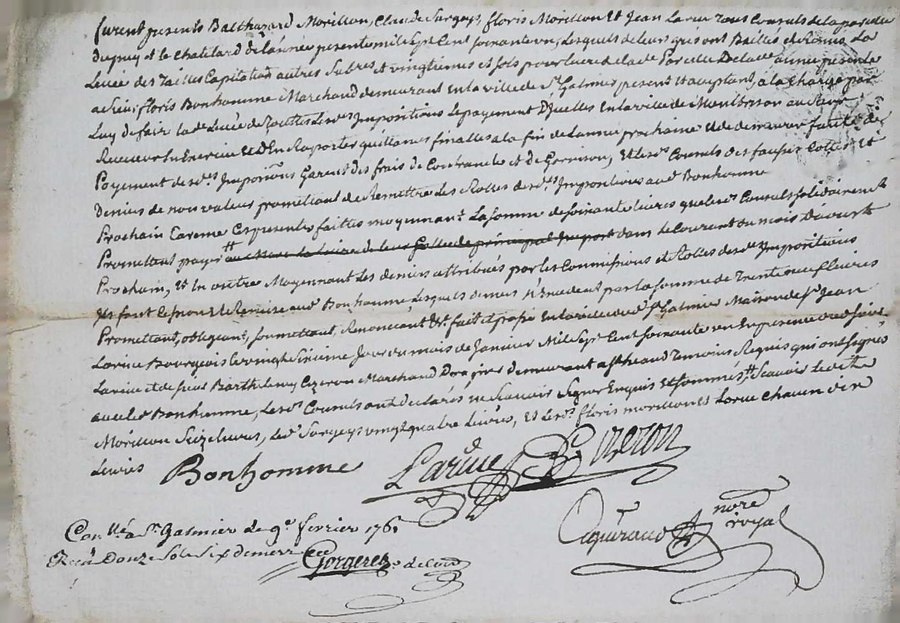 furent presents Balthazard Morillon, Claude Sargeys, floris Morillon Et Jean Larue tous Consuls de la parcelle
Dupuy et le Chatelard de lannée presente mil Sept Cent soixante un, Lesquels de leurs gré ont Baillés et Remis La
Levée des Tailles Capitation autres Subres Et vingtiemes et sols pour livre de lad. Parcelle De lad. année presente
a Sieur floris Bonhomme Marchand demeurant En la ville de St. Galmier present Et acceptant, a la Charge par
Luy de faire lad. Levée de Touttes lesd. Impositions Le payement D'icelles En la ville de Montbrison au sieur
Receveur En Exercice Et d'En Raporter quittances finalles a la fin de l'année prochaine Et de demeurer faute de
Payement desd. Impositions Garent des frais de Contrainte et de Garnison, Et lesd. Consuls des fausses Cottes Et
Deniers de non valeurs promettant de Remettre Les Rolles desd. Impositions aud. Bonhomme
Prochain Careme Ces presentes faittes moyennant La somme de soixante livres que lesd. Consuls solidairement
Promettent payer dans le Courant du mois D'aoust
Prochain, Et En outre Moyennant Les deniers attribués par les Commissions et Rolles desd. Impositions
Et font Cession et Remise aud. Bonhomme, Lesquels deniers par la somme de Trente neuf livres
Promettant, obligeant, soumettant, Renonceant &c. fait et passé En lad. ville de St. Galmier Maison de Sr. Jean
Larue Bourgeois le vingt Sixieme Jour du mois de Janvier Mil Sept Cent soixante un En presence dud. sieur
Larue et de sieur Barthelemy Cizeron Marchand demeurant a Temoins Requis qui ont signés
avec led. Bonhomme, Lesd. Consuls ont Declarés ne Scavoir Signer Enquis Et sommés Scavoir led.
Morillon Seize livres, led. Sargeys vingt quatre livres, Et lesd. floris morillon Et Larue chacun dix
Livres
Bonhomme Larüe Cizeron
Con.llé a St. Galmier le 9e. fevrier 1761
Receu Douze Sols Six deniers
Gorgeret
notre
royal